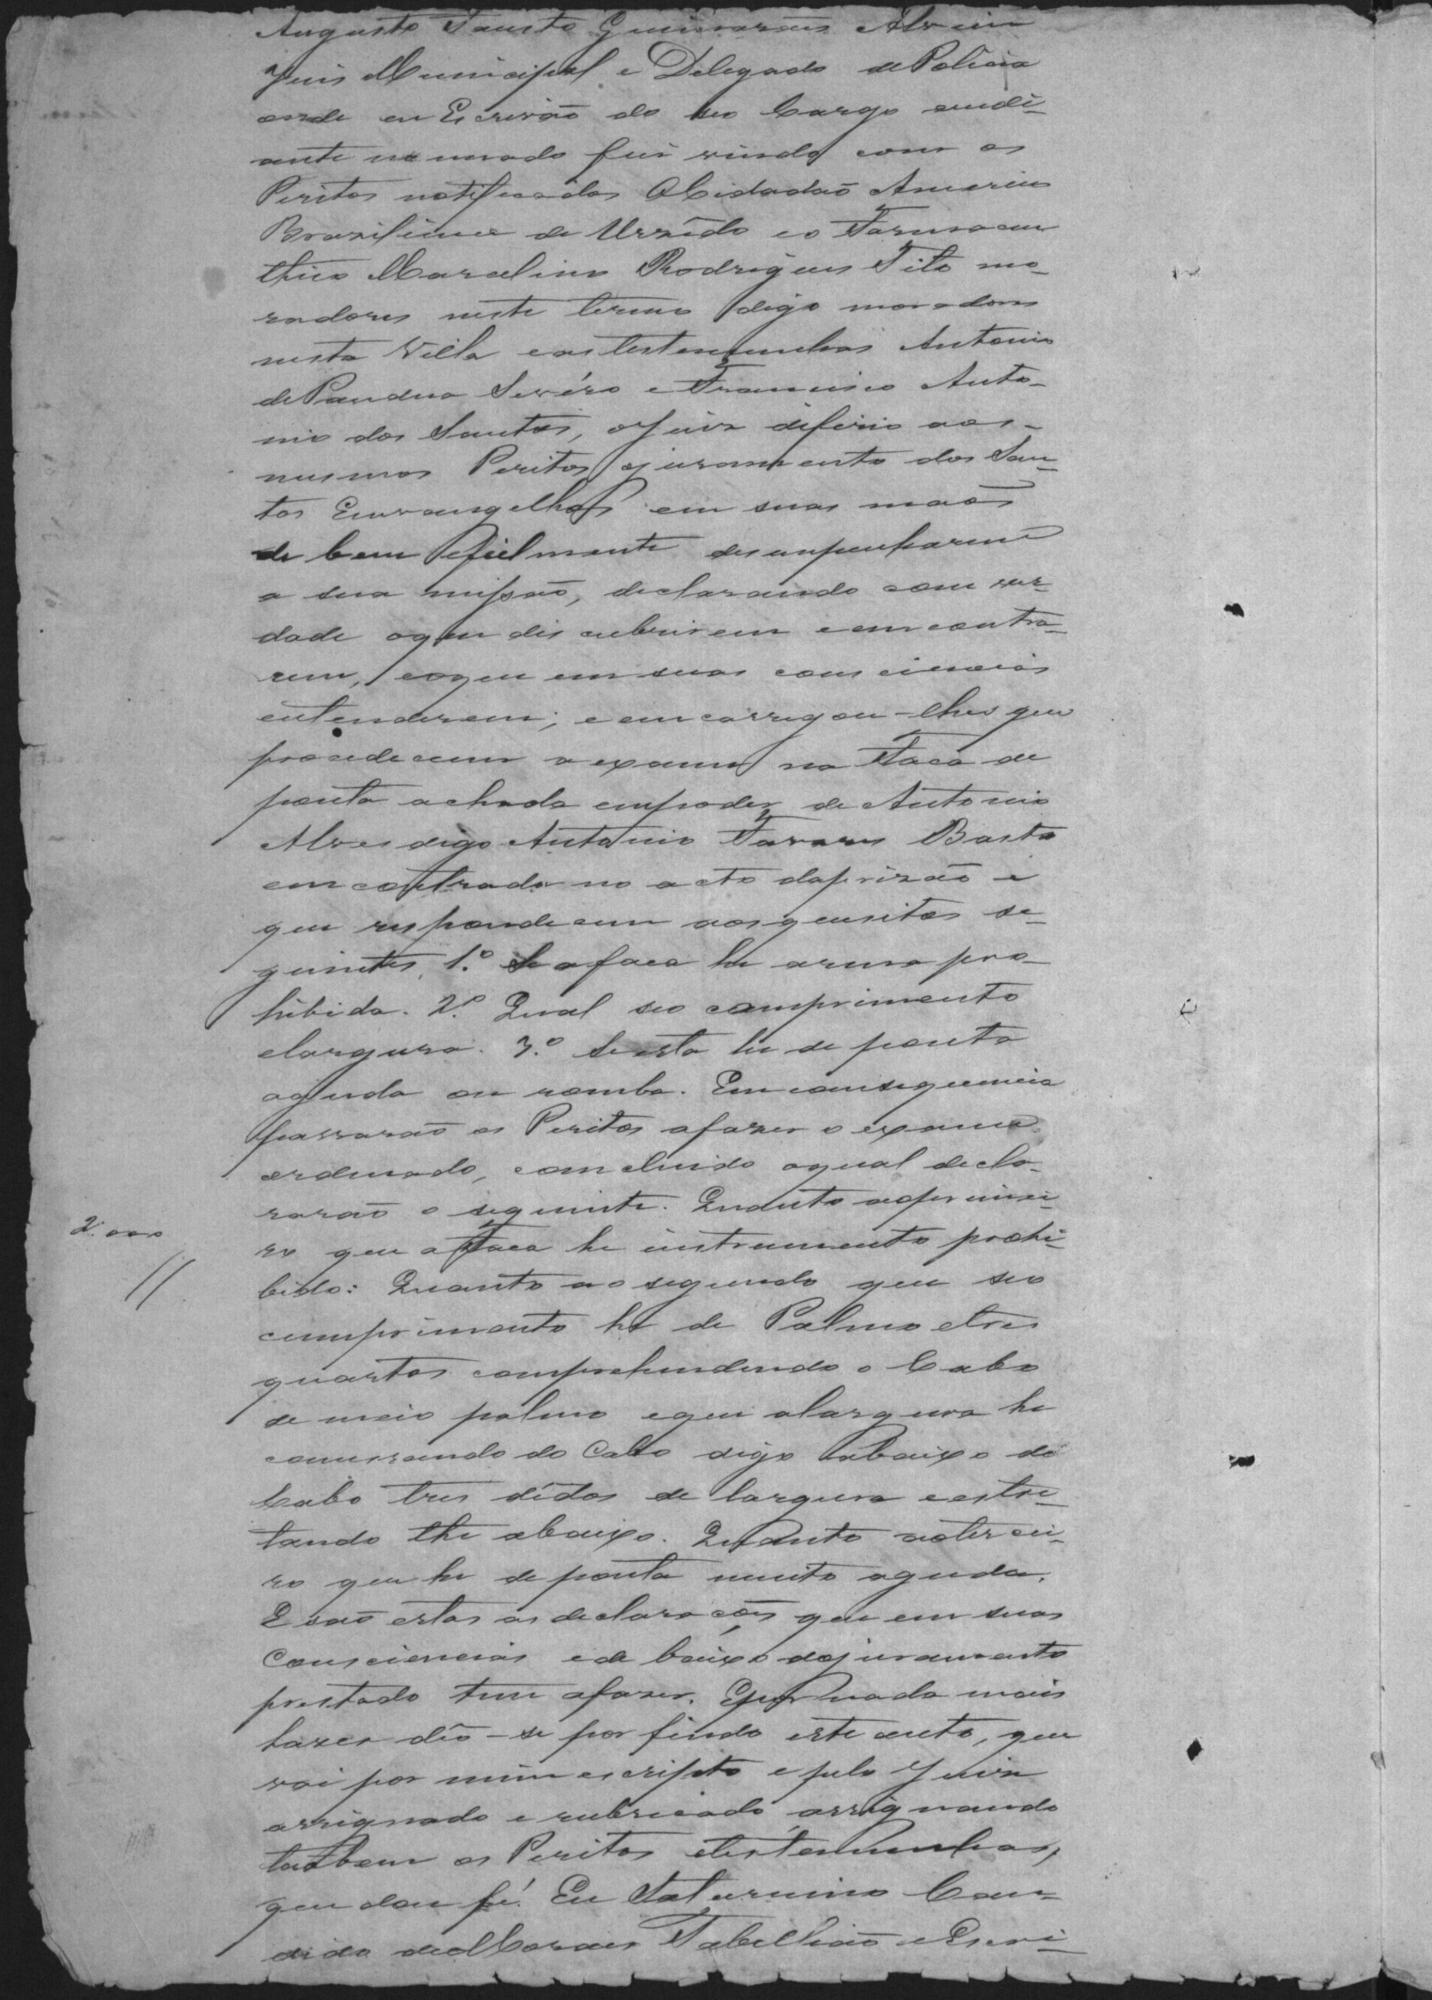 Augusto Fausto Guimarães Alvim
Juis Municipal e Delegado de Policia
onde eu Escrivão do seo Cargo endi-
ante nomeado fui vindo com os
Peritos notificados O Cidadão Americo
Braziliense de Urzêdo eo Farmaceu
thico Marcelino Rodrigues Tito mo-
radores neste termo digo moradores
nesta Villa eas testemunhas Antonio
de Paudua Sevéro e Francisco Anto-
nio dos Santos, o Juiz deferio aos-
mesmos Peritos ojuramento dos San-
tos Emvangelhos em suas maõs
de bem efielmente desempenharem
a sua missaõ, declarando com ver-
dade oque discubrirem e emcontra-
rem, eoque em suas consciencias
entenderem; e emcarregou-lhes que
procedecem o exame na Faca de
ponta achada empoder de Antonio
Alves digo Antonio Tavares Basto
emcontrada no acto daprizaõ e
que respondecem aosquesitos se-
guintes, 1.º Se afaca he arma pro-
hibida. 2.º Qual seo comprimento
elargura. 3.º Se esta he de ponta
aguda ou romba. Em consequencia
passaraõ os Peritos afazer o exame
ordenado, concluido oqual decla-
raraõ o seguinte. Quanto aoprimei-
ro que a Faca he instrumento prohi-
bido: Quanto ao segundo que seo
cumprimento he de Palmo etres
quartos comprehendendo o Cabo
de meio palmo eque alargura he
comessando do Cabo digo abaixo do
Cabo tres dêdos de largura eestrei-
tando the abaixo. Quanto aotercei-
ro que he de ponta muito aguda.
E saõ estas as declaracões que em suas
Consciencias ede baixo dojuramento
prestado tem afazer. Epor nada mais
haver dêo-se por findo este auto, que
vai por mim escripto e pelo Juiz
assignado e rubricado, assignando
tambem os Peritos etestemunhas,
que dou fé. Eu Saturnino Can-
dido de Moraes Tabelliaõ e Escri-
2.000